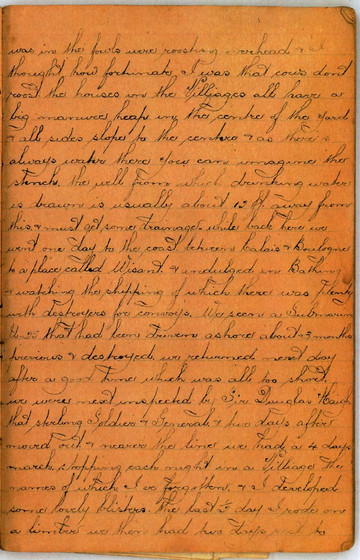 was in the fowls were roosting overhead & I
thought how fortunate I was that cows dont
roost the houses in the Villiages all have a
big manure heap in the centre of the yard
& all sides slope to the centre & as there is
always water there you can immagine the
stench. the well from which drinking water
is drawn is usually about 12 ft away from
this. & must get some drainage while back here we
went one day to the coast between Calais & Boulogne
to a place called Wisant. & indulged in Bathing
& watching the shipping of which there was plenty
with destroyers for convoys. We seen a Submarine
that had been driven ashore about 3 months
previous & destroyed, we returned next day
after a good time which was all too short
we were next inspected by Sir Douglas Haigh
that sterling Soldier & General, & two days after
moved out & nearer the line we had a 4 days
march, stopping each night in a Villiage the
names of which I ve forgotten, & I developed
some lovely blisters. The last ½ day I rode on
a limber we then had two days rest &